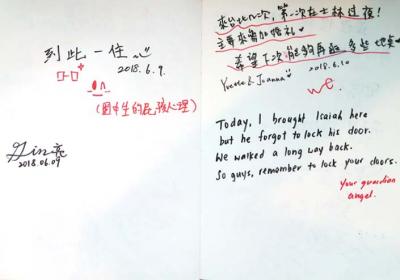 到此一住
2018.6.9.
(国中生的屁孩心理)
2018.06.09
來台北八次,第一次在士林过夜!
主要來參加婚礼
希望下次能夠再
Yvette & Joanna
2018.6.10
we.
Today, I brought Isaiah here
but he forgot to lock his door.
We walked a long way back.
So guys, remember to lock your doors.
Your guardian
angel.